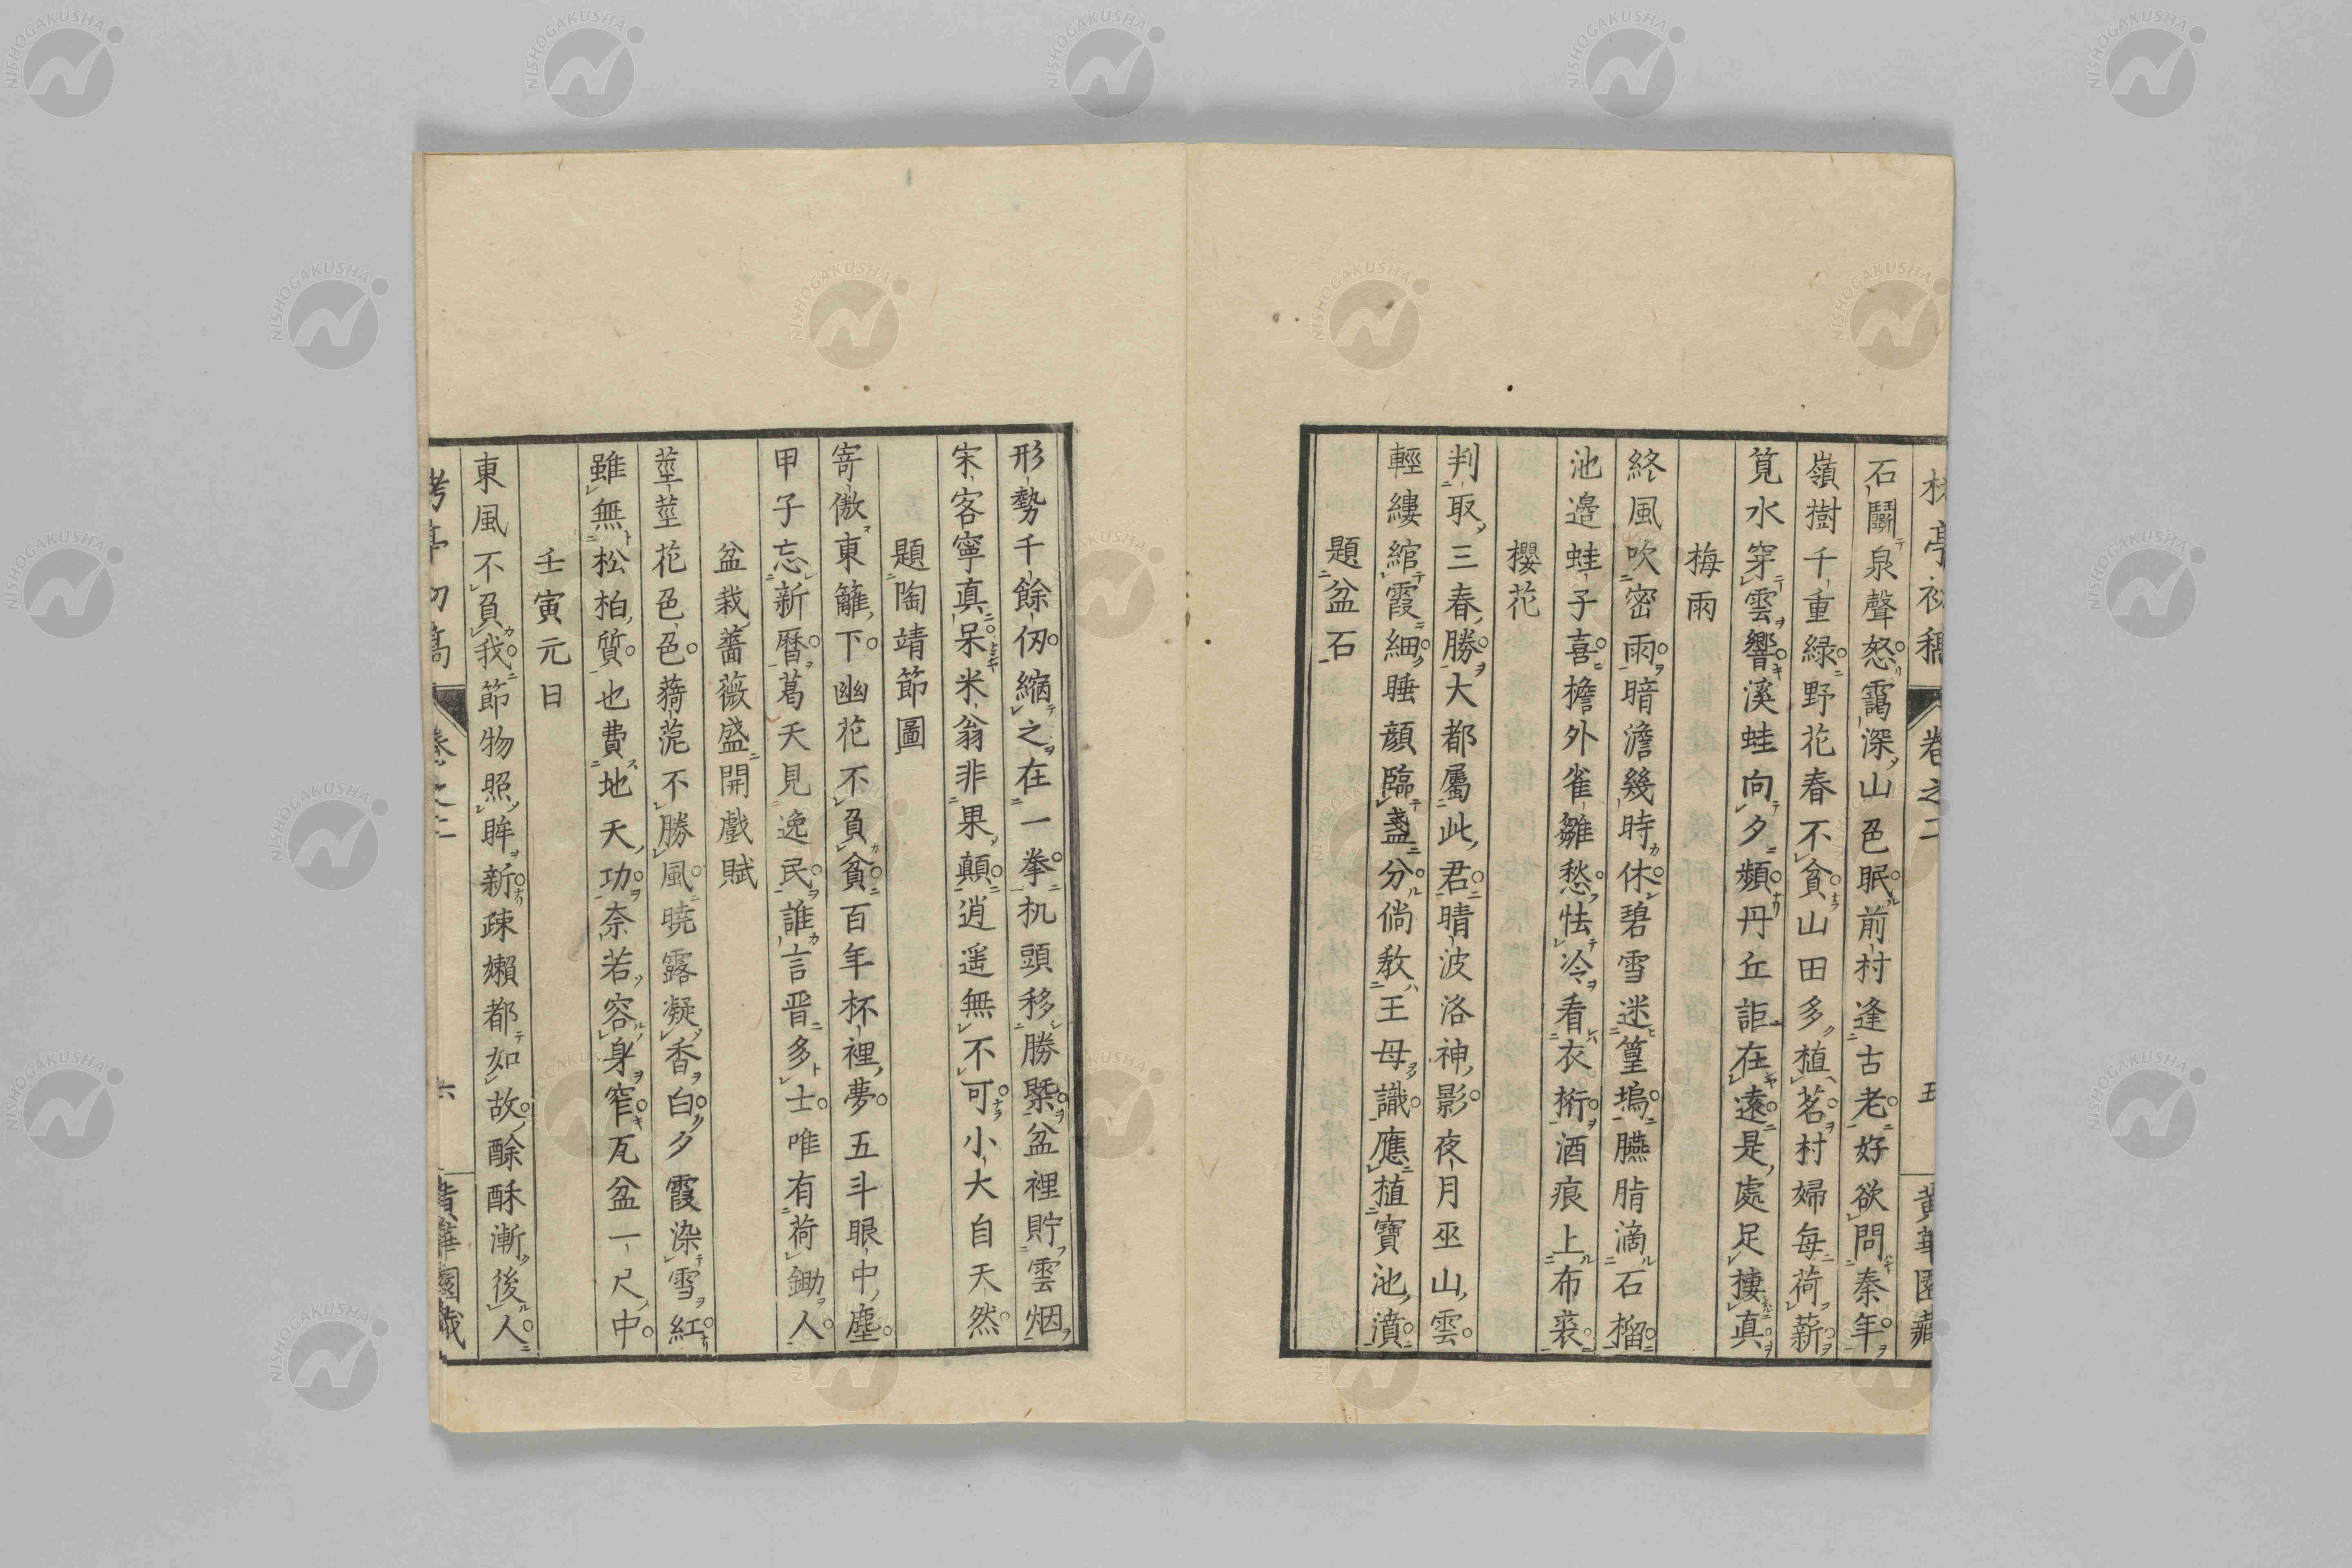 亭初稿 卷之二 五 黃華園藏
石鬭泉聲怒靄深山色眠前村逢古老好欲問秦年
嶺樹千重緑野花春不貧山田多植茗村婦每荷薪
筧水穿雲響溪蛙向夕頻丹丘詎在遠是處足棲真
梅雨
終風吹密雨暗澹幾時休碧雪迷篁塢臙脂滴石榴
池邉蛙子喜檐外雀雛愁怯冷看衣桁酒痕上布裘
櫻花
判取三春勝大都屬此君晴波洛神影夜月巫山雲
輕縷綰霞細睡顔臨盞分倘教王母識應植寶池濆
題盆石
形勢千餘仭縮之在一拳机頭移勝槩盆裡貯雲烟
宋客寧真呆米翁非果顛逍遥無不可小大自天然
題陶靖節圖
寄傲東籬下幽花不負貧百年杯裡夢五斗眼中塵
甲子忘新暦葛天見逸民誰言晋多士唯有荷鋤人
盆栽薔薇盛開戲賦
莖莖花色色蕱萢不勝風暁露凝香白夕霞染雪紅
雖無松柏質也費地天功奈若容身窄瓦盆一尺中
壬寅元日
東風不負我節物照眸新疎嬾都如故酴酥漸後人
亭初稿 卷之二 六 黃華園藏